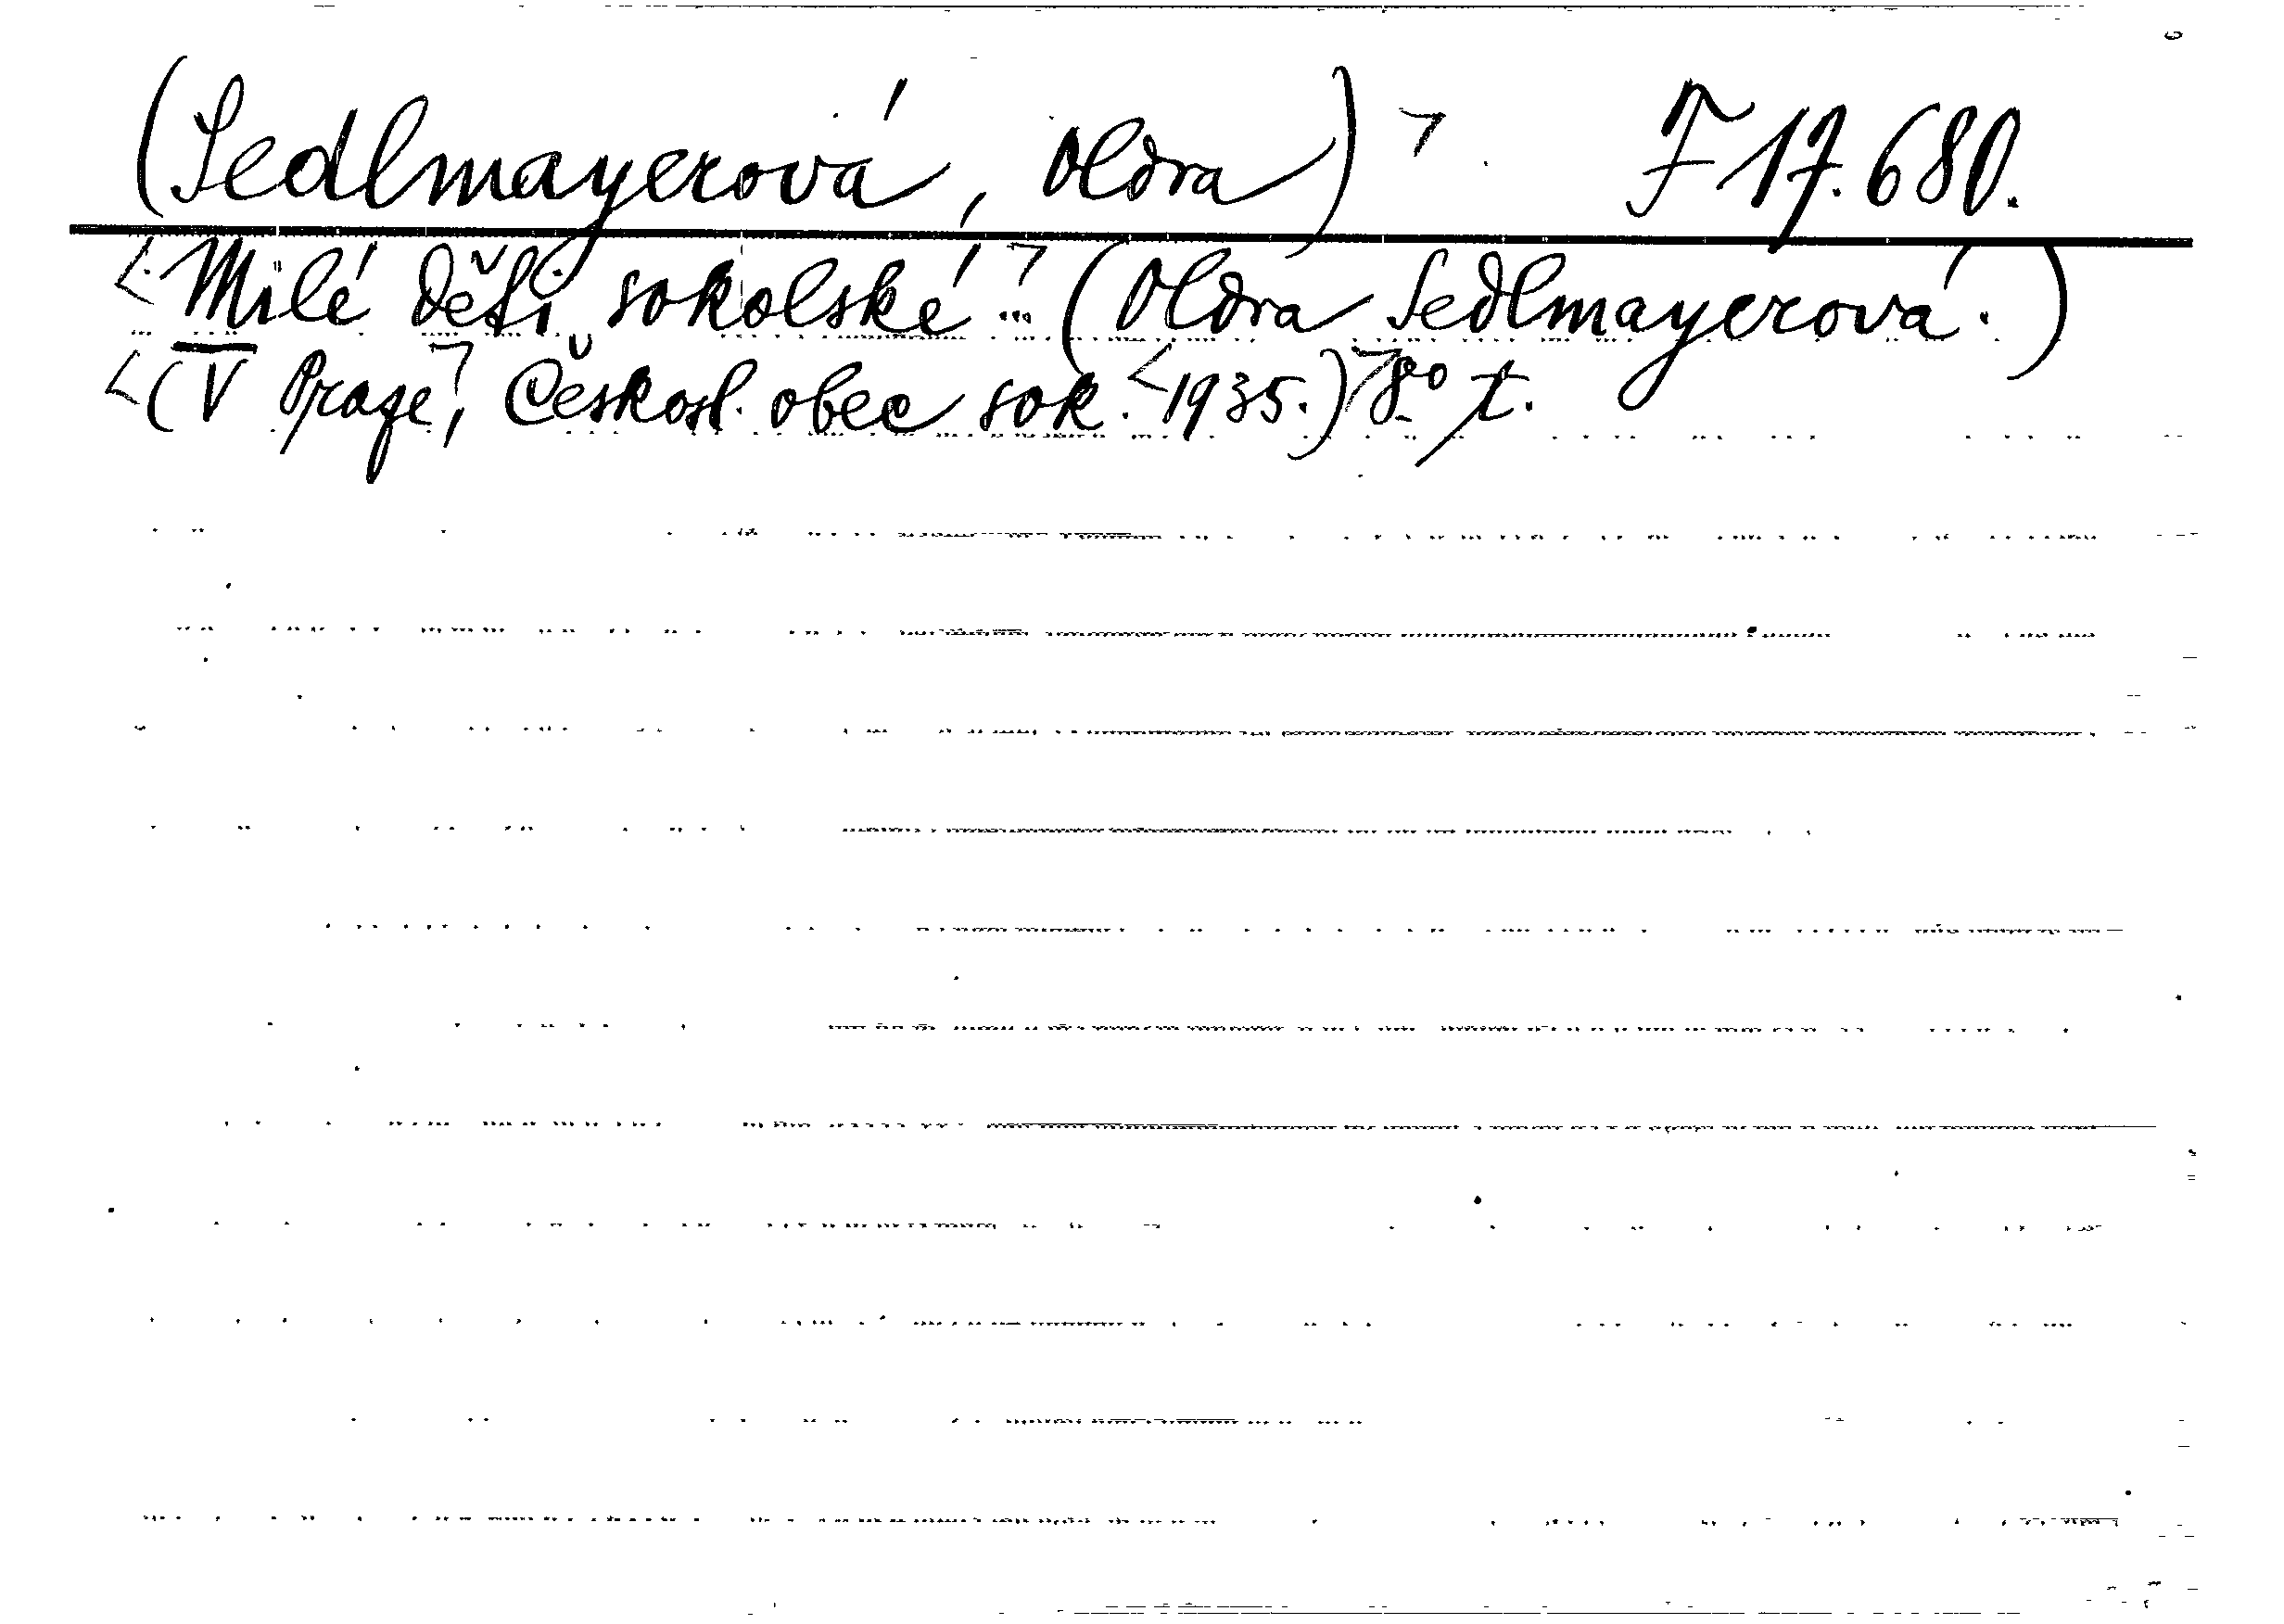 (Sedlmayerová, Oldra)> F 17.680.
<Milé děti sokolské!> ... (Oldra Sedlmayerová.)
<(V Praze,> Českosl. obec sok. <1935.)> 8° t.